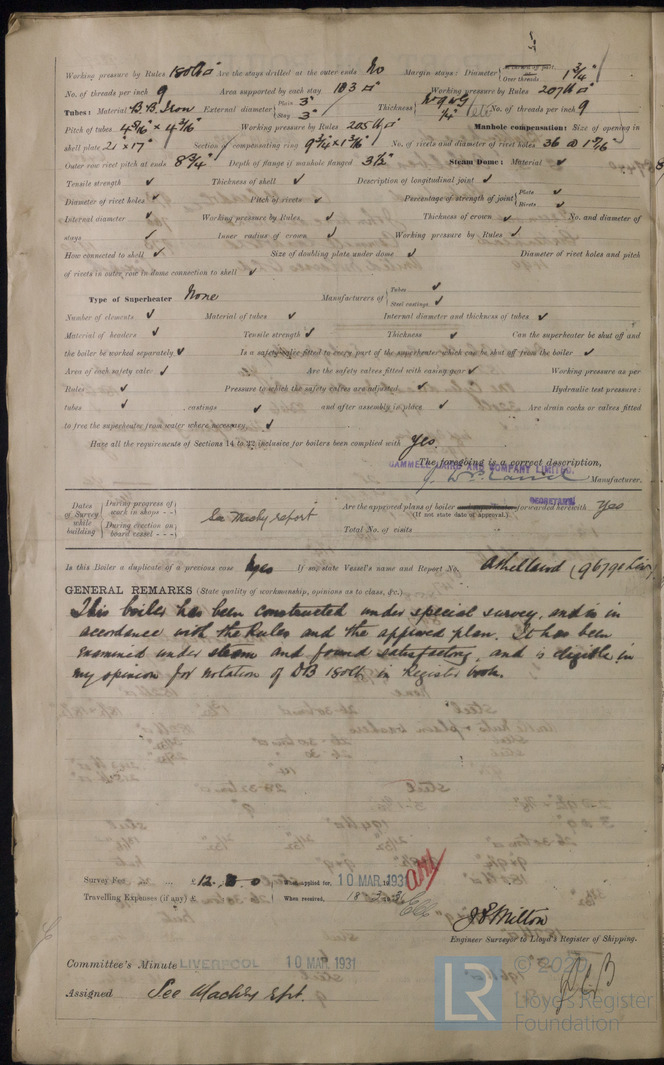 Working pressure by Rules 180 lb □" Are the stays drilled at the outer ends No Margin stays: Diameter { Over threads 1 3/4"
No. of threads per inch 9 Area supported by each stay 103 □" Working pressure by Rules 207 lb □"
Tubes: Material B.B. Iron External diameter { Plain 3" Stay 3" Thickness { 1/4" No. of threads per inch 9
Pitch of tubes 4 3/16" × 4 3/16" Working pressure by Rules 205 lb □" Manhole compensation: Size of opening in
shell plate 21 × 17" Section of compensating ring No. of rivets and diameter of rivet holes 36 @ 1 7/16"
Outer row rivet pitch at ends 8 3/4" Depth of flange if manhole flanged 3 1/2" Steam Dome: Material ✓
Tensile strength ✓ Thickness of shell ✓ Description of longitudinal joint ✓
Diameter of rivet holes ✓ Pitch of rivets ✓ Percentage of strength of joint { Plate ✓ Rivets ✓
Internal diameter ✓ Working pressure by Rules ✓ Thickness of crown ✓ No. and diameter of
stays ✓ Inner radius of crown ✓ Working pressure by Rules ✓
How connected to shell ✓ Size of doubling plate under dome ✓ Diameter of rivet holes and pitch
of rivets in outer row in dome connection to shell ✓
Type of Superheater None Manufacturers of { Tubes ✓ Steel castings ✓
Number of elements ✓ Material of tubes ✓ Internal diameter and thickness of tubes ✓
Material of headers ✓ Tensile strength ✓ Thickness ✓ Can the superheater be shut off and
the boiler be worked separately ✓ Is a safety valve fitted to every part of the superheater which can be shut off from the boiler ✓
Area of each safety valve ✓ Are the safety valves fitted with easing gear ✓ Working pressure as per
Rules ✓ Pressure to which the safety valves are adjusted ✓ Hydraulic test pressure:
tubes ✓ castings ✓ and after assembly in place ✓ Are drain cocks or valves fitted
to free the superheater from water where necessary ✓
Have all the requirements of Sections 14 to 22 inclusive for boilers been complied with Yes.
The foregoing is a correct description,
CAMMELL LAIRD AND COMPANY LIMITED.
Manufacturer.
SECRETARY
Dates of Survey while building { During progress of work in shops - - During erection on board vessel - - - See Machy report
Are the approved plans of boiler forwarded herewith Yes
(If not state date of approval.)
Total No. of visits
Is this Boiler a duplicate of a previous case Yes If so, state Vessel's name and Report No. Athellaird (96790 Liv)
GENERAL REMARKS (State quality of workmanship, opinions as to class, &c.)
This boiler has been constructed under special survey, and is in
accordance with the Rules and the approved plan. It has been
examined under steam and found satisfactory, and is eligible in
my opinion for notation of DB 180 lb in Register book.
Survey Fee ... ... £12 : 8 : 0 When applied for, 10 MAR 1931
Travelling Expenses (if any) £ When received,
J S Milton
Engineer Surveyor to Lloyd's Register of Shipping.
Committee's Minute LIVERPOOL 10 MAR 1931
Assigned See Machy rpt.
LR © 2020 Lloyd's Register Foundation